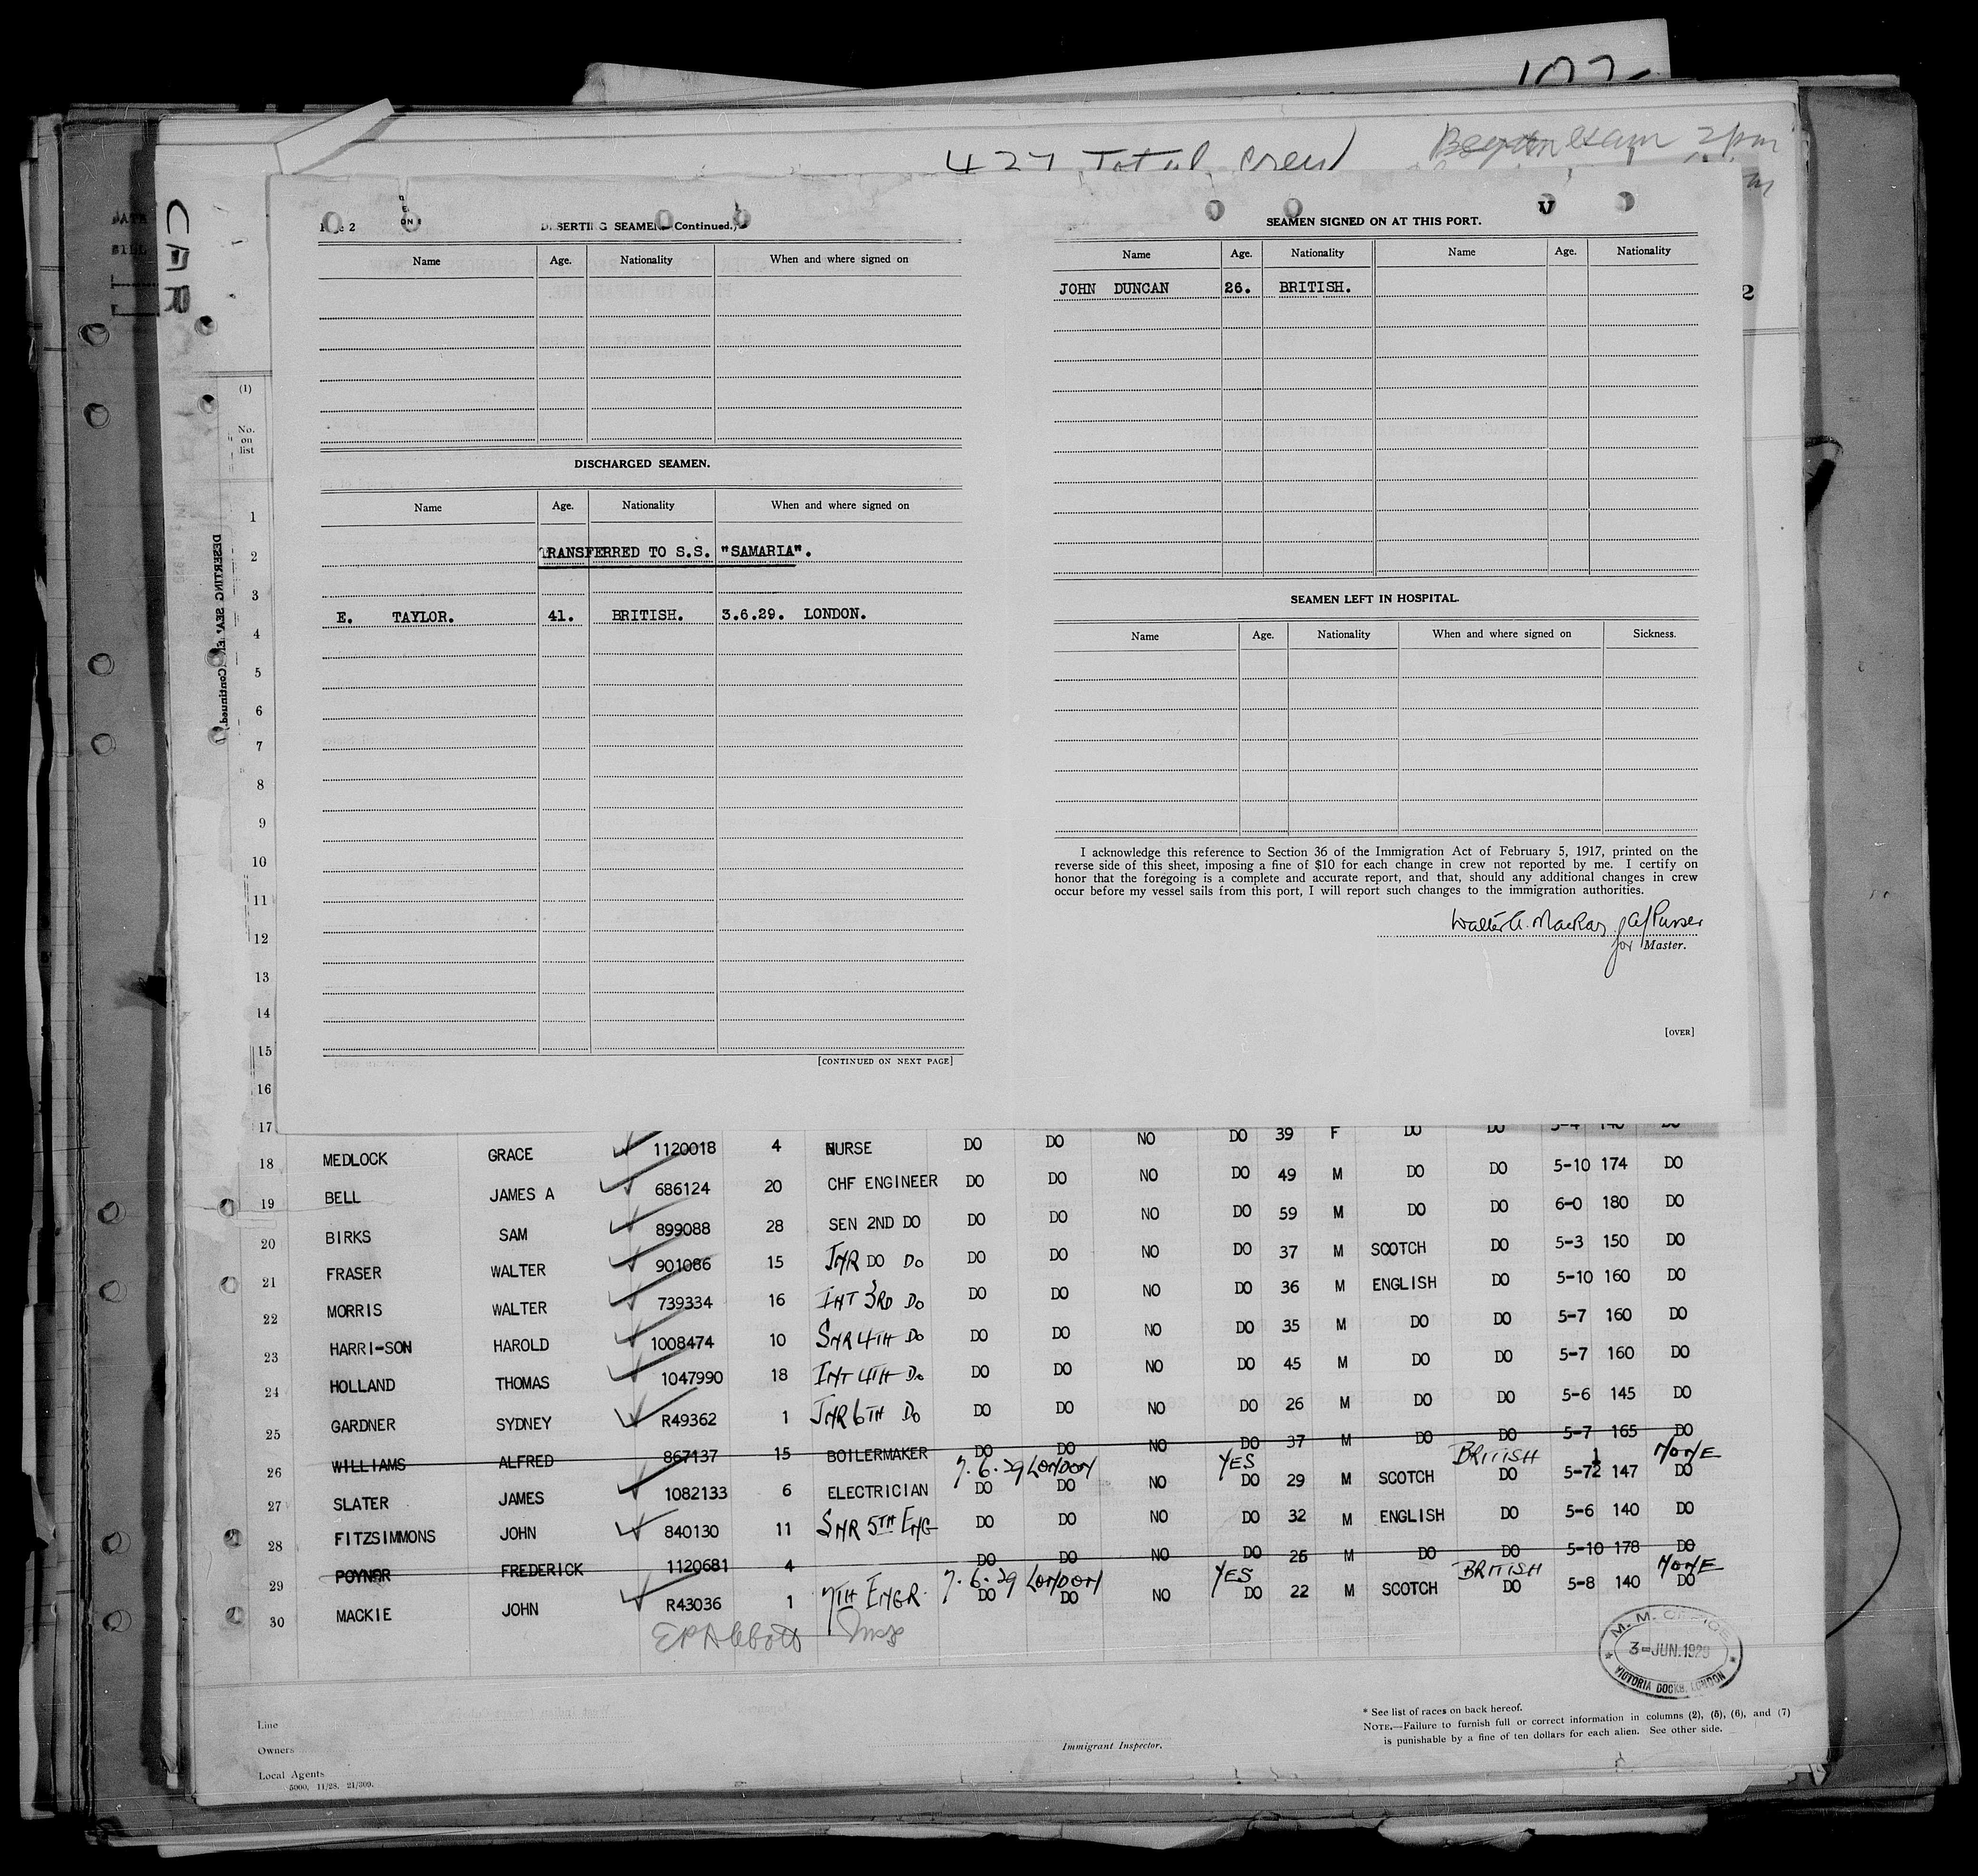 427 Total Crew
exam 2 pm
Page 2
DESERTING SEAMEN (Continued.)
Name Age. Nationality When and where signed on
DISCHARGED SEAMEN.
Name Age. Nationality When and where signed on
TRANSFERRED TO S.S. "SAMARIA".
E. TAYLOR. 41. BRITISH. 3.6.29. LONDON.
[CONTINUED ON NEXT PAGE]
SEAMEN SIGNED ON AT THIS PORT.
Name Age. Nationality Name Age. Nationality
JOHN DUNCAN 26. BRITISH.
SEAMEN LEFT IN HOSPITAL.
Name Age. Nationality When and where signed on Sickness.
I acknowledge this reference to Section 36 of the Immigration Act of February 5, 1917, printed on the
reverse side of this sheet, imposing a fine of $10 for each change in crew not reported by me. I certify on
honor that the foregoing is a complete and accurate report, and that, should any additional changes in crew
occur before my vessel sails from this port, I will report such changes to the immigration authorities.
Walter A. MacKay A/Purser
for Master.
[OVER]
2
CAR
(1)
No.
on
list
1
2
3
4
5
6
7
8
9
10
11
12
13
14
15
16
17
18 MEDLOCK GRACE 1120018 4 NURSE DO DO NO DO 39 F DO DO 5-4 140 DO
19 BELL JAMES A 686124 20 CHF ENGINEER DO DO NO DO 49 M DO DO 5-10 174 DO
20 BIRKS SAM 899088 28 SEN 2ND DO DO DO NO DO 59 M DO DO 6-0 180 DO
21 FRASER WALTER 901086 15 JNR DO DO DO DO NO DO 37 M SCOTCH DO 5-3 150 DO
22 MORRIS WALTER 739334 16 INT 3RD DO DO DO NO DO 36 M ENGLISH DO 5-10 160 DO
23 HARRI-SON HAROLD 1008474 10 SNR 4TH DO DO DO NO DO 35 M DO DO 5-7 160 DO
24 HOLLAND THOMAS 1047990 18 INT 4TH DO DO DO NO DO 45 M DO DO 5-7 160 DO
25 GARDNER SYDNEY R49362 1 JNR 6TH DO DO DO NO DO 26 M DO DO 5-6 145 DO
26 WILLIAMS ALFRED 867137 15 BOILERMAKER DO DO NO DO 37 M DO DO 5-7 165 DO
7.6.29 LONDON YES BRITISH NONE
27 SLATER JAMES 1082133 6 ELECTRICIAN DO DO NO DO 29 M SCOTCH DO 5-7½ 147 DO
28 FITZSIMMONS JOHN 840130 11 SNR 5TH ENG DO DO NO DO 32 M ENGLISH DO 5-6 140 DO
29 POYNER FREDERICK 1120681 4 DO DO NO DO 25 M DO DO 5-10 178 DO
7.6.29 LONDON YES BRITISH NONE
30 MACKIE JOHN R43036 1 7TH ENGR. DO DO NO DO 22 M SCOTCH DO 5-8 140 DO
E P Abbott
M. M. OFFICE
3-JUN.1929
VICTORIA DOCKS, LONDON
Line
Owners
Local Agents
5000, 11/28. 21/309.
Immigrant Inspector.
* See list of races on back hereof.
NOTE.—Failure to furnish full or correct information in columns (2), (5), (6), and (7)
is punishable by a fine of ten dollars for each alien. See other side.